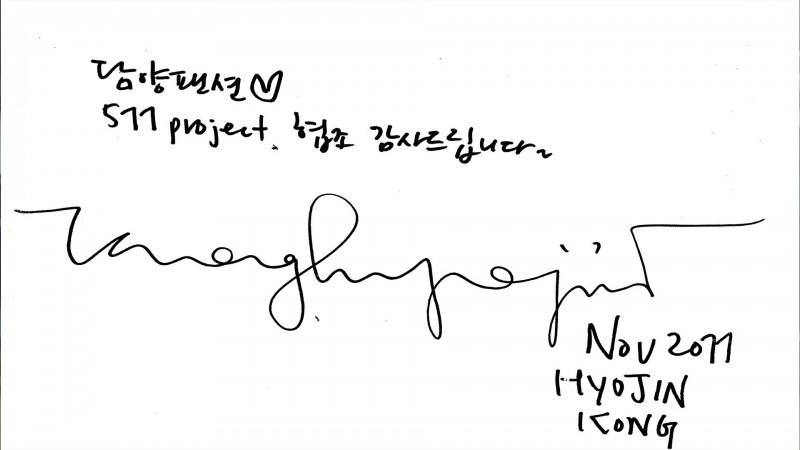 담양팬션♡
577 project. 협조 감사드립니다~
konghyojin
Nov 2011
HYOJIN
KONG